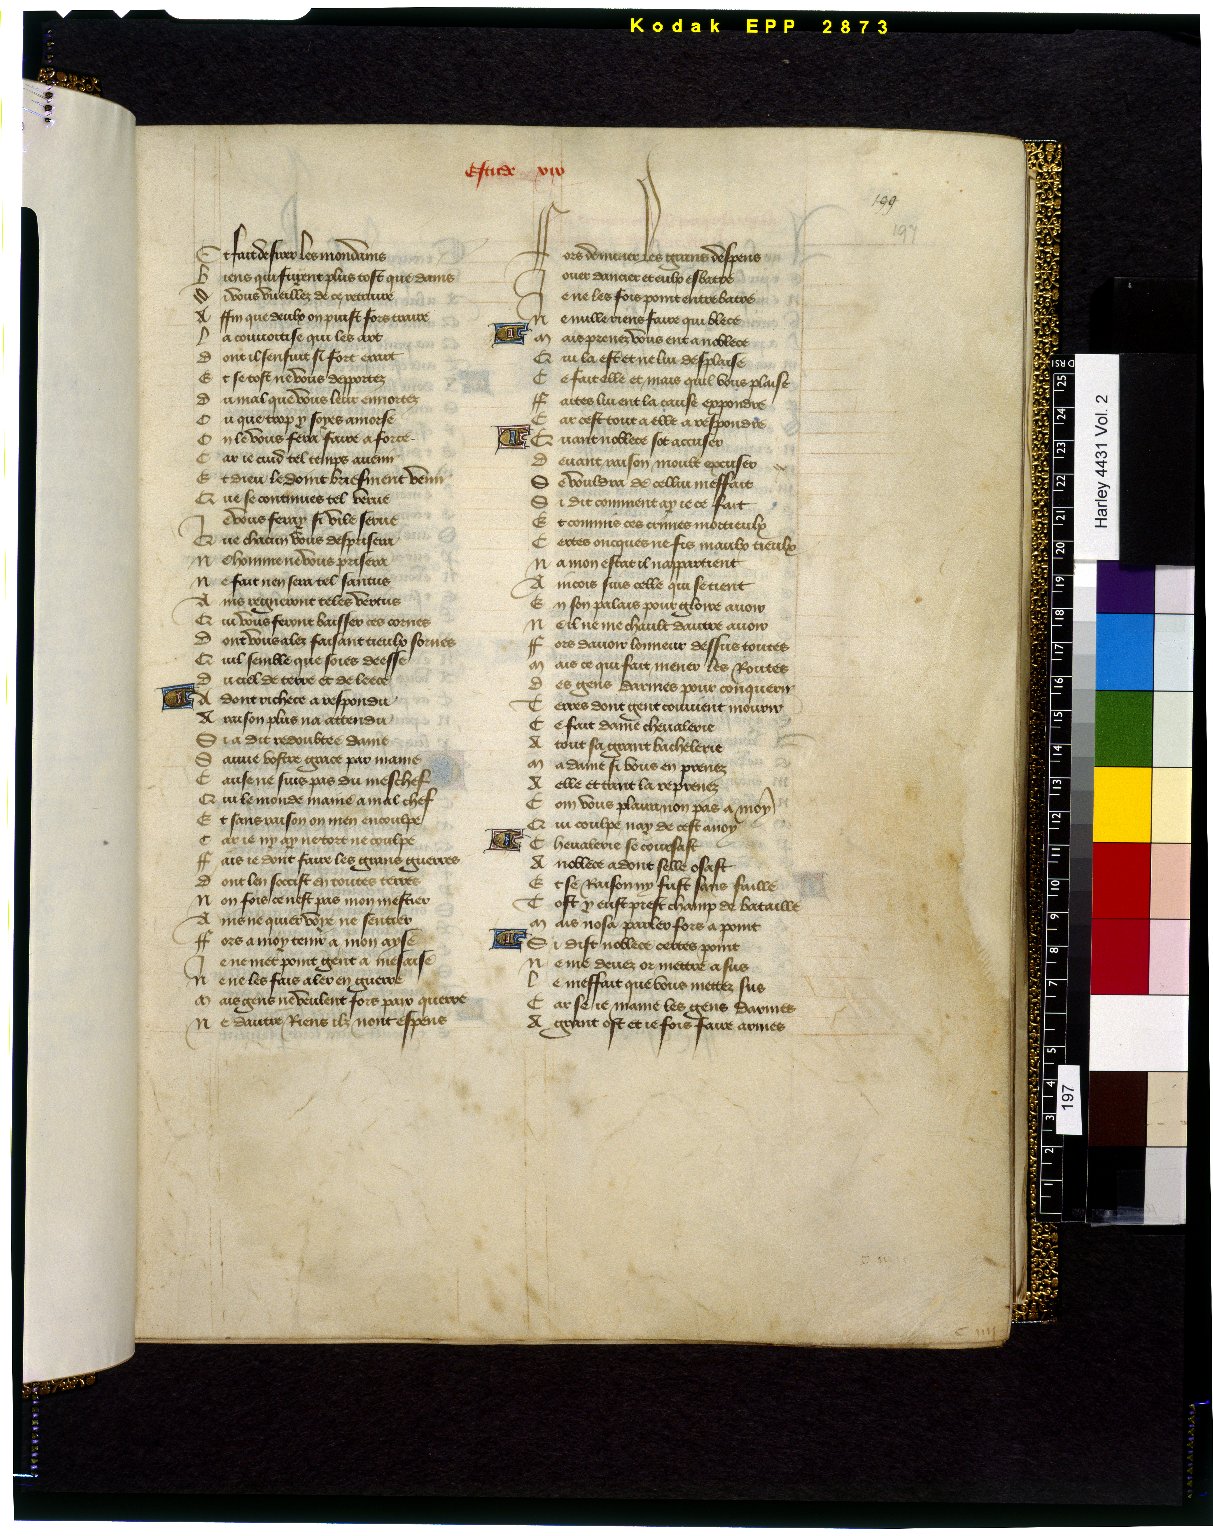 Kodak EPP 2873
Estude xiiii
199
197
Et fait desirer les mondains
Biens qui fuyent plus tost que dains
Si vous vueillez de ce retraire
Affin que deulx on puist fors traire
La couvoitise qui les art
dont il sensuit si fort essart
Et se tost ne vous deportez
du mal que vous leur ennortez
Ou que trop y soyes amorse
On le vous fera faire a force
Car ie cuid tel temps avenir
Et dieu le doint briefment venir
Que se continues tel verue
Je vous feray si vile serue
Que chacun vous desprisera
Ne homme ne vous prisera
Ne fait nen sera tel santus
Ains regneront teles vertus
Qui vous feront baisser ces cornes
dont vous alez faisant tieulx sornes
Quil semble que soies deesse
du ciel de terre et de leece
Adont richece a respondu
A raison plus na attendu
Si a dit redoubtee dame
Sauue vostre grace par mame
Cause ne suis pas du meschef
Qui le monde maine a mal chef
Et sans raison on men encoulpe
Car ie ny ay ne tort ne coulpe
Fais ie dont faire les grans guerres
dont len soccist en toutes terres
Non fois ce nest pas mon mestier
Ains ne quier voye ne sentier
Fors a moy tenir a mon ayse
Je ne met point gent a mesaise
Ne ne les fais aler en guerre
Mais gens ne veulent fors paix querre
Ne dautre Riens ilz nont espens
Fors demener les grans despens
Jouer dancier et eulx esbatre
Je ne les fois point entrebatre
Ne nulle riens faire qui blece
Mais prenez vous ent a noblece
Qui la est et ne lui desplaise
Ce fait elle et mais quil vous plaise
Faites lui ent la cause exppondre
Car cest tout a elle a respondre
Quant noblece sot accuser
devant raison moult excuser
Se vouldra de cellui meffait
Si dit comment ay ie ce fait
Et commis ces crimes mortieulx
Certes oncques ne fis maulx tieulx
Na mon estat il nappartient
Aincois suis celle qui se tient
En son palais pour gloire avoir
Ne il ne me chault dautre avoir
Fors davoir lonneur dessus toutes
Mais ce qui fait mener les Routes
des gens darmes pour conquerir
Terres dont gent couvient mourir
Ce fait dame chevalerie
A tout sa grant bachelerie
Ma dame si vous en prenez
A elle et tant la reprenez
Com vous plaira non pas a moy
Qui coulpe nay de cest anoy
Chevalerie se coursast
A noblece adont selle osast
Et se Raison ny fust sans faille
Tost y eust prest champ de bataille
Mais nosa parler fors a point
Si dist noblece certes point
Ne me devez or mettre a sus
Le meffait que vous mettez sus
Car se ie maine les gens darmes
A grant ost et ie fois faire armes
c iiii
Harley 4431 Vol. 2
197